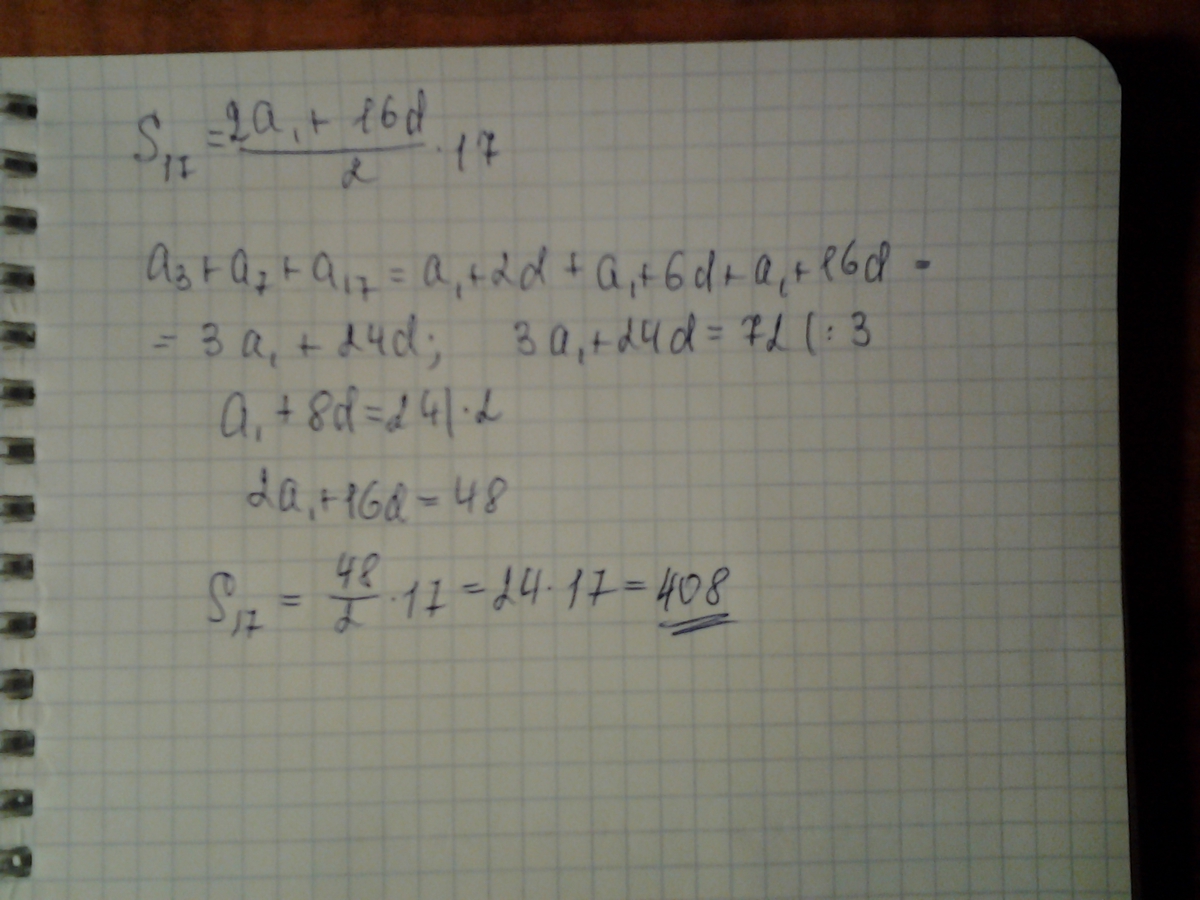 S₁₇ = (2a₁ + 16d)/2 · 17
a₃ + a₇ + a₁₇ = a₁ + 2d + a₁ + 6d + a₁ + 16d =
= 3a₁ + 24d; 3a₁ + 24d = 72 (: 3
a₁ + 8d = 24 | · 2
2a₁ + 16d = 48
S₁₇ = 48/2 · 17 = 24 · 17 = 408